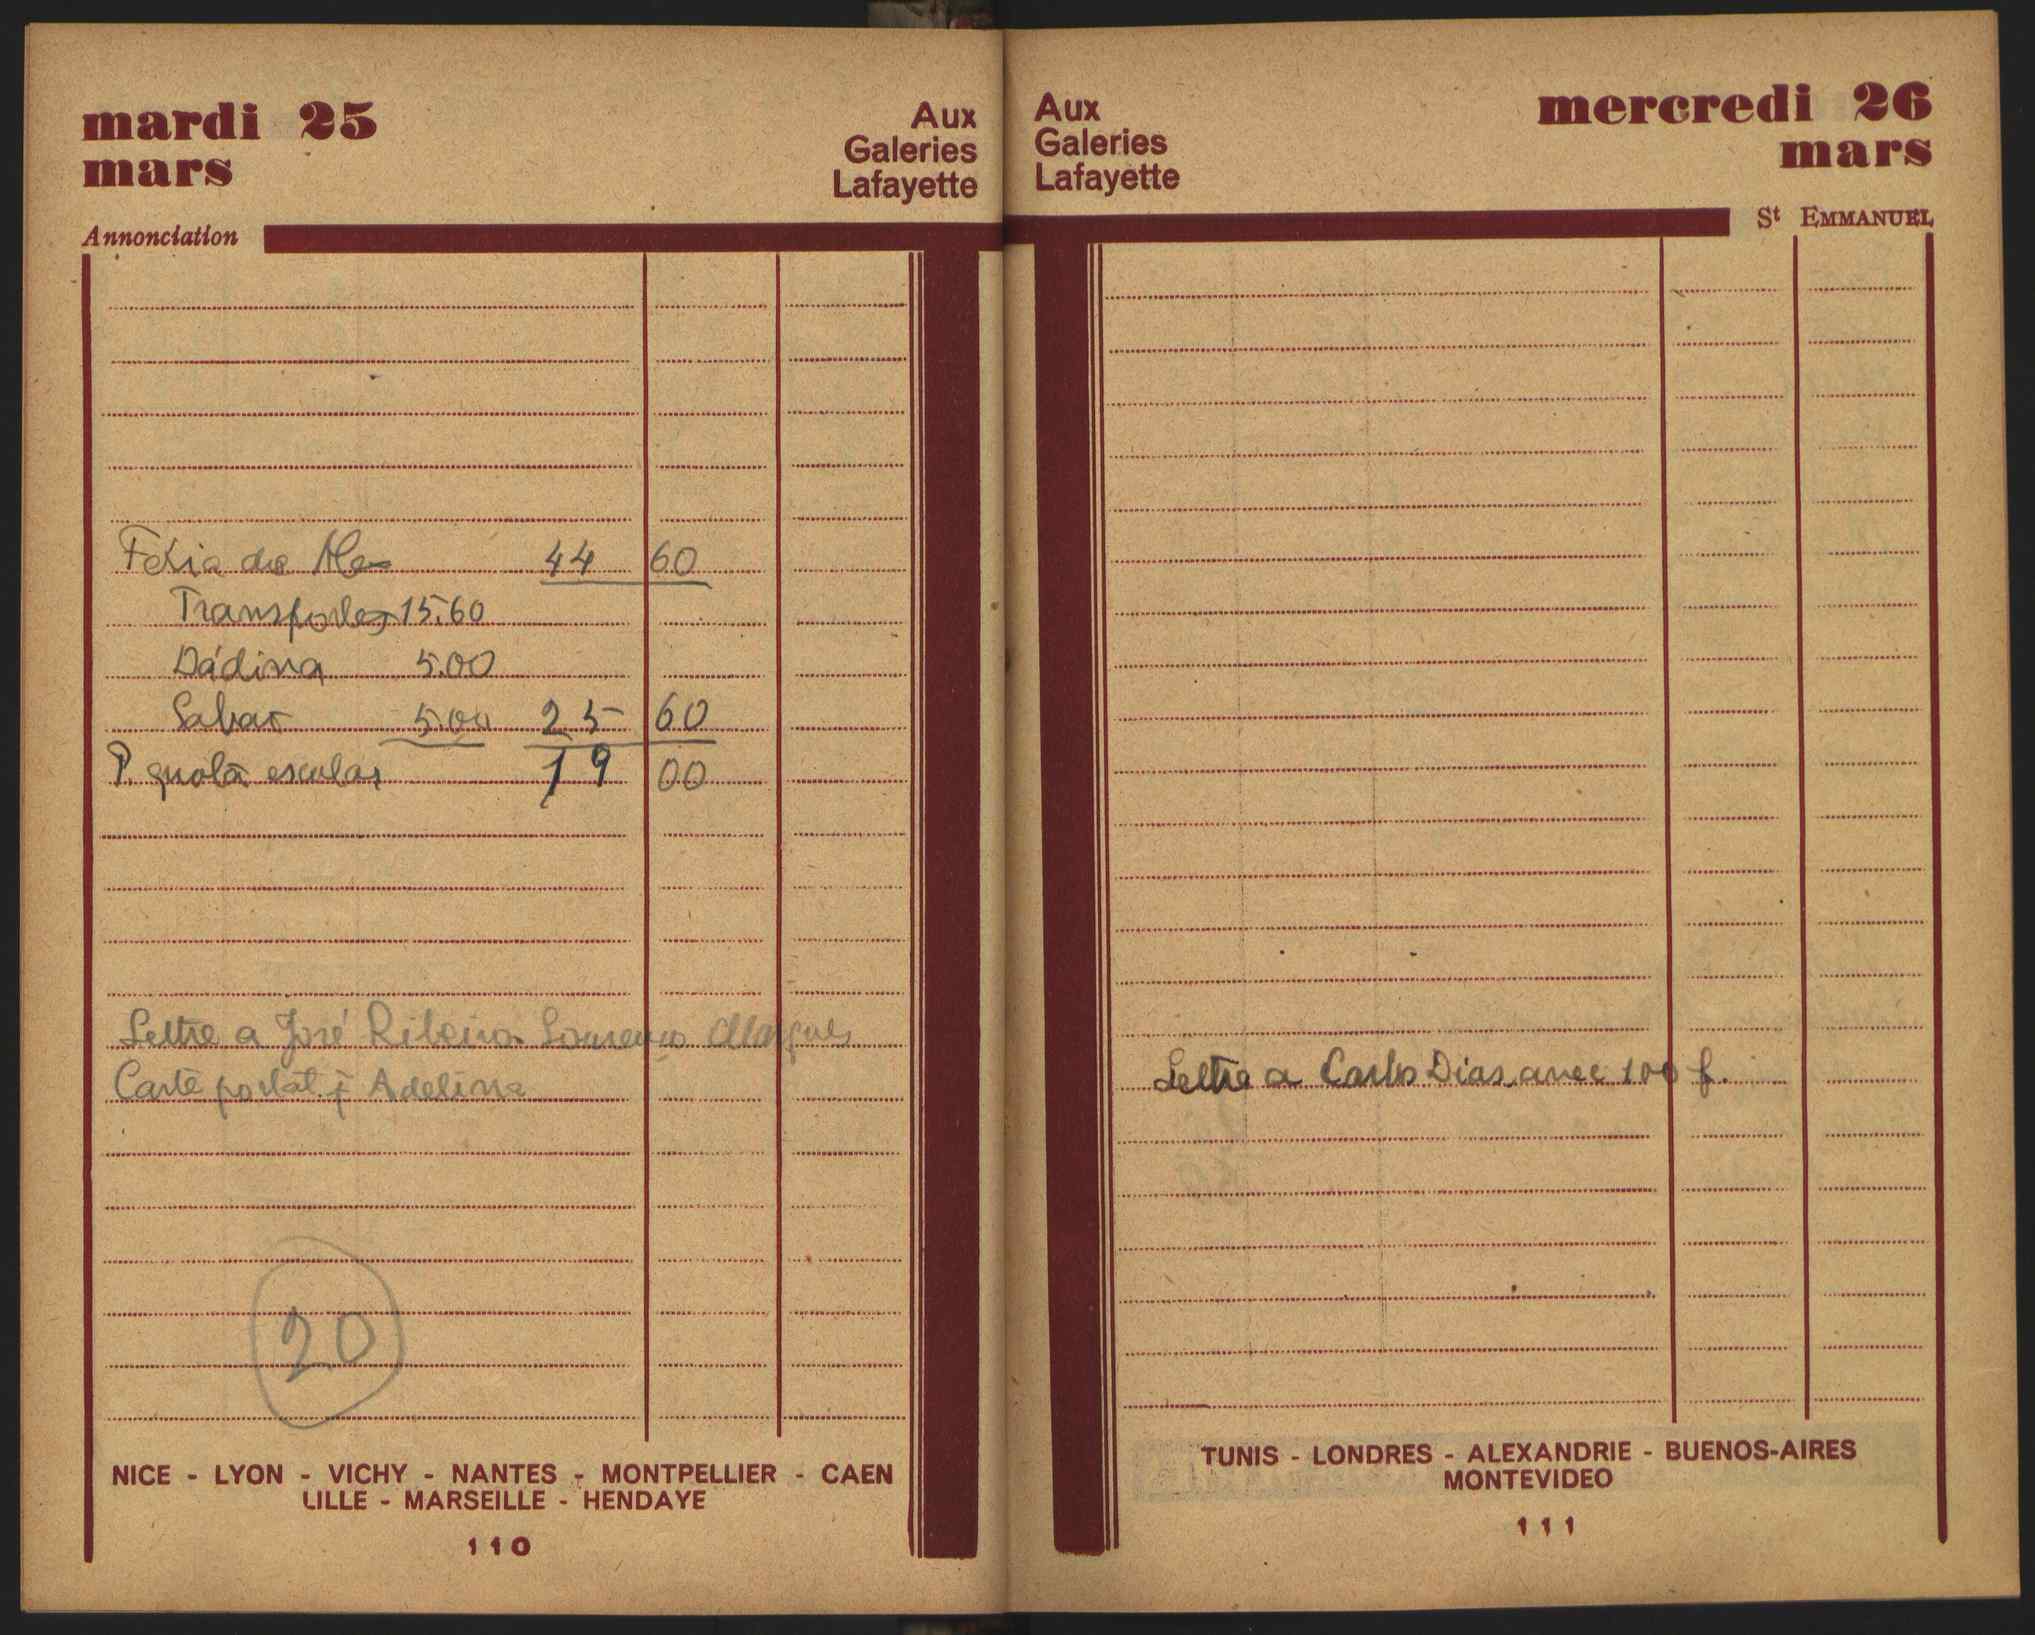 mardi 25
mars
Aux
Galeries
Lafayette
Annonciation
Féria do 44 60
Transportes 15.60
Dádiva 5.00
Sabão 5.00 25 60
P. escolar 19 00
Lettre a José Ribeiro Lourenço Marques
Carte postal p Adelina
20
NICE - LYON - VICHY - NANTES - MONTPELLIER - CAEN
LILLE - MARSEILLE - HENDAYE
110
Aux
Galeries
Lafayette
mercredi 26
mars
St EMMANUEL
Lettre a Carlos Dias avec 100 f.
TUNIS - LONDRES - ALEXANDRIE - BUENOS-AIRES
MONTEVIDEO
111